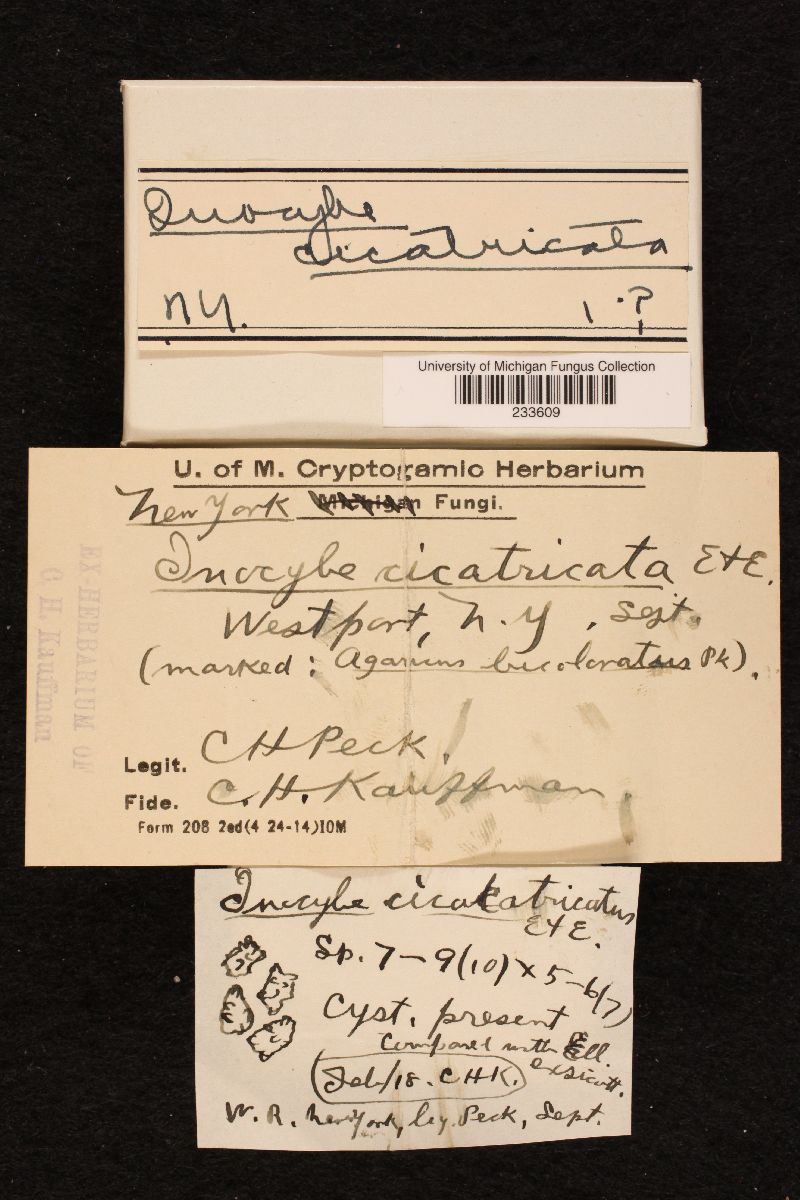 Inocybe
cicatricata
N.Y. 1.?
University of Michigan Fungus Collection
233609
U. of M. Cryptogamic Herbarium
New York Michigan Fungi.
Inocybe cicatricata E&E.
Westport, N.Y., Sept.
(marked: Agaricus bicoloratus Pk).
EX-HERBARIUM OF
C. H. Kauffman
Legit. C H Peck.
Fide. C. H. Kauffman.
Form 208 2ed(4 24-14)10M
Inocybe cicatricatus
E&E.
Sp. 7-9(10) x 5-6(7)
Cyst. present
Compared with Ell.
exsicatt.
(Feb/18. CHK.)
W. R. New York, leg. Peck, Sept.